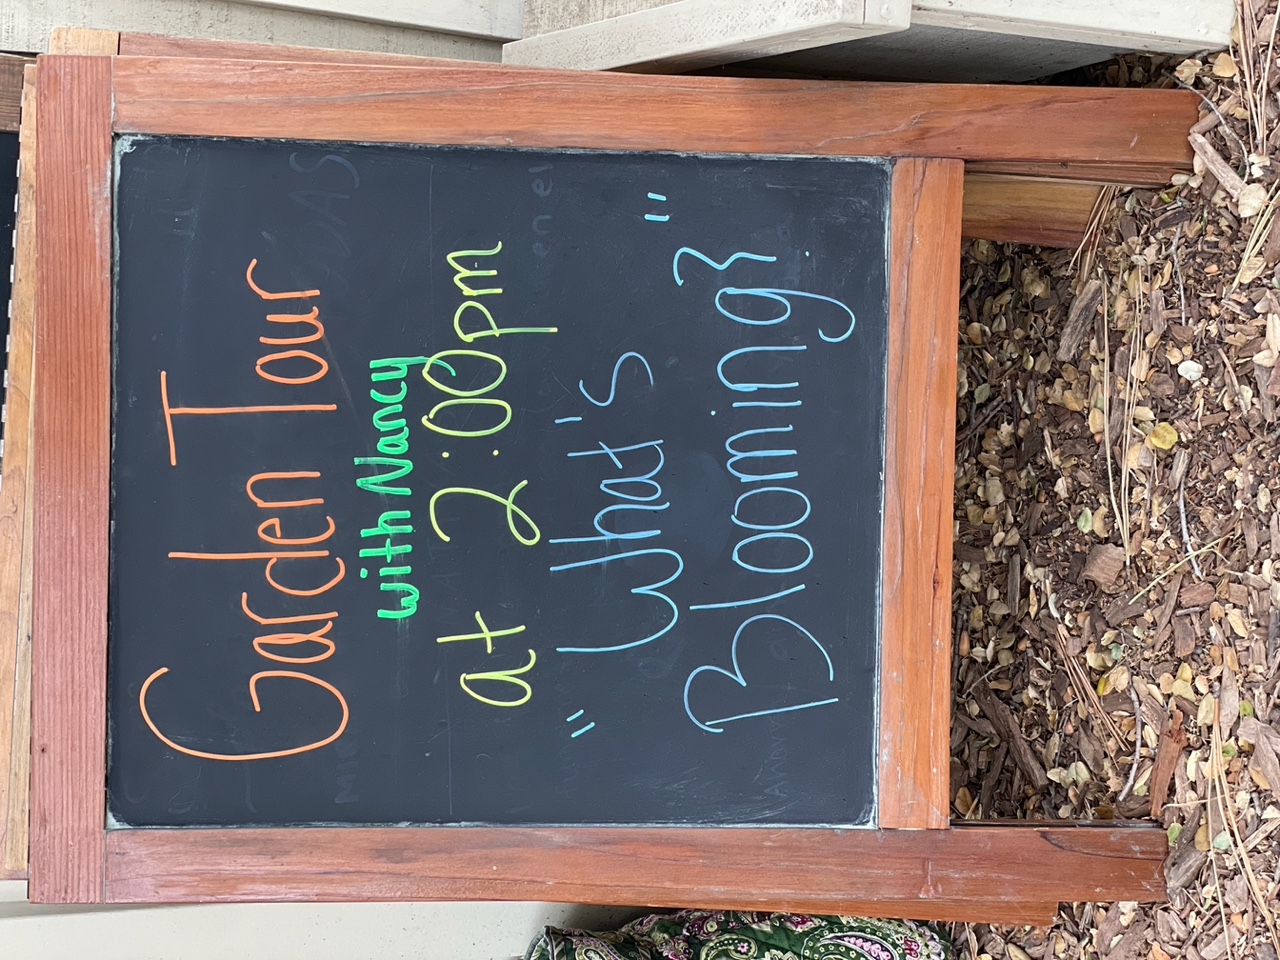 Garden Tour
with Nancy
at 2:00pm
"What's
Blooming?"